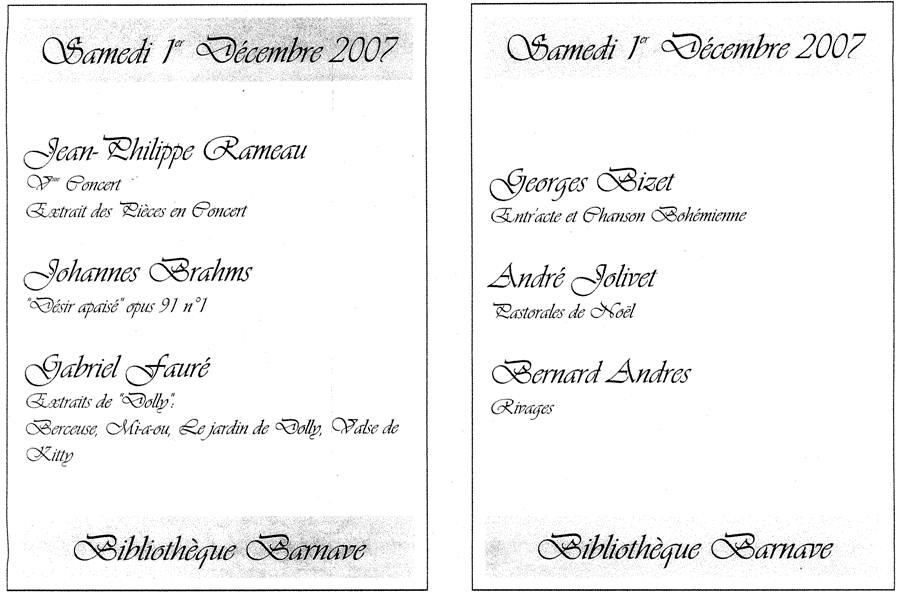 Samedi 1er Décembre 2007
Jean-Philippe Rameau
Vme Concert
Extrait des Pièces en Concert
Johannes Brahms
"Désir apaisé" opus 91 n°1
Gabriel Fauré
Extraits de "Dolly":
Berceuse, Mi-a-ou, Le jardin de Dolly, Valse de
Kitty
Bibliothèque Barnave
Samedi 1er Décembre 2007
Georges Bizet
Entr'acte et Chanson Bohémienne
André Jolivet
Pastorales de Noël
Bernard Andres
Rivages
Bibliothèque Barnave